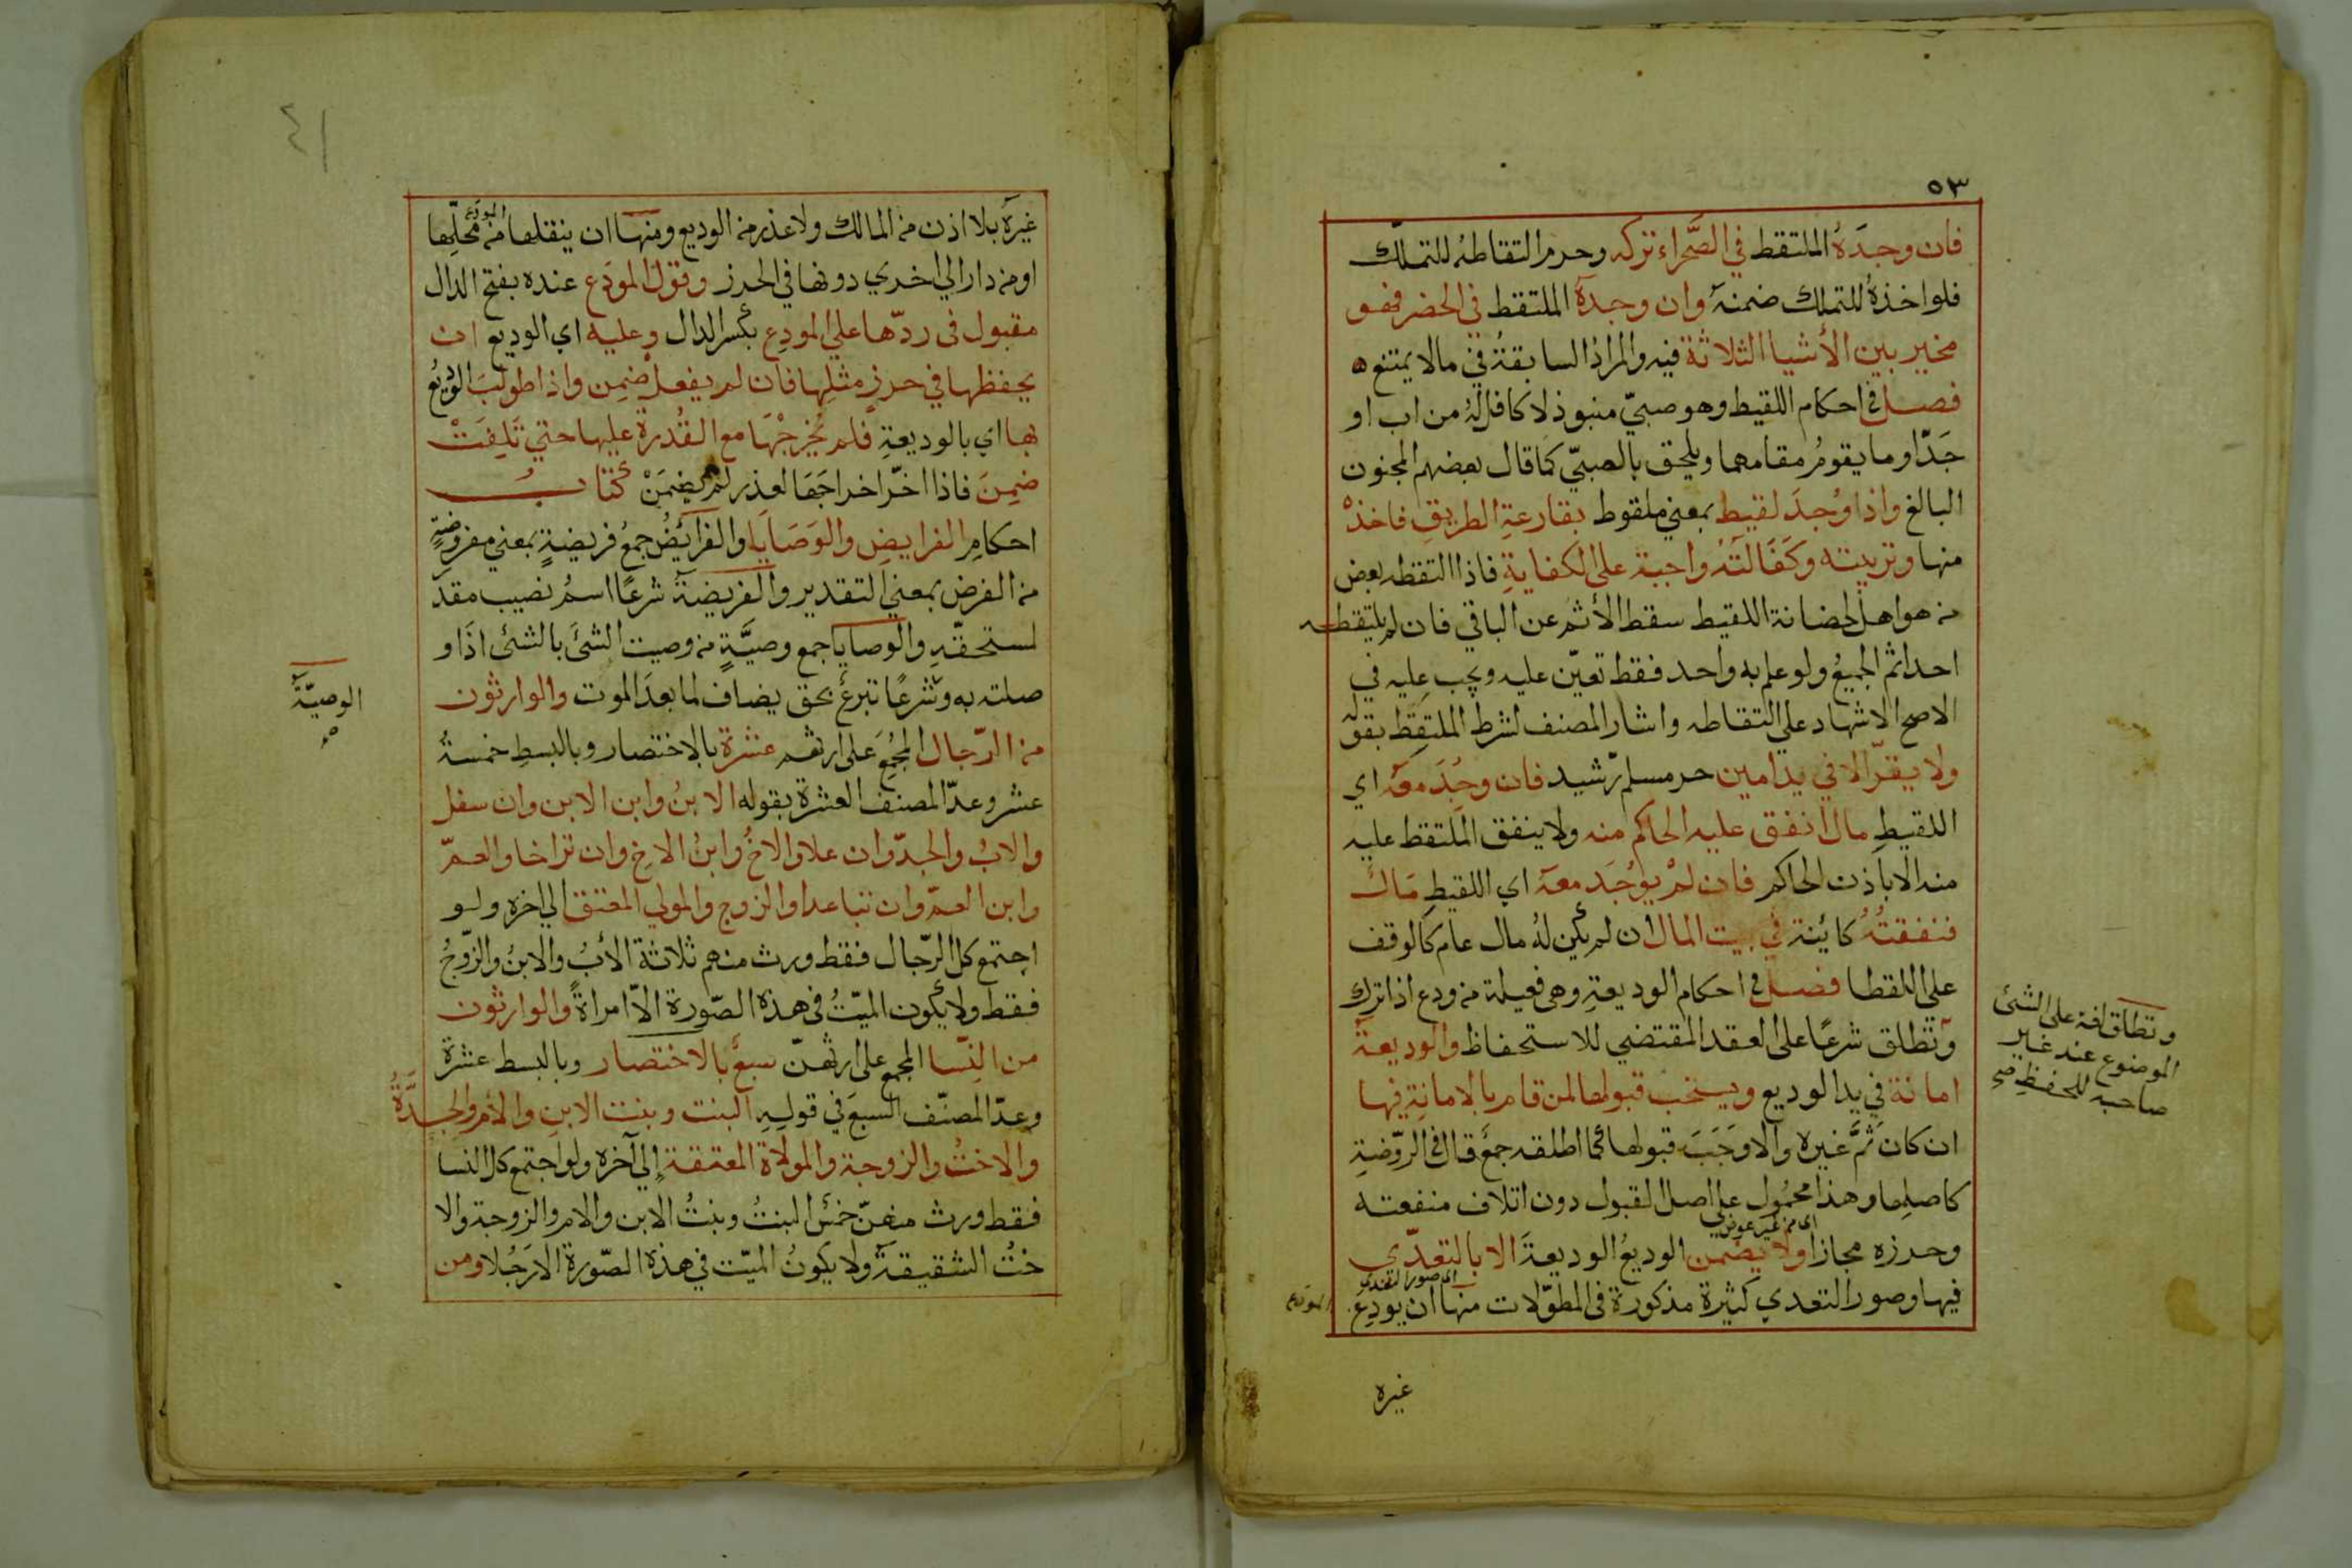 ٥٣
فان وجدَهُ الملتقط في الصَّحراء تركه وحرم التقاطهُ للتملّك
فلو اخذهُ للتملك ضمنهُ وان وجدهُ الملتقط في الحضر فهو
مخير بين الأشيا الثلاثة فيه والمراد السابقةُ في مالا يمتنع ه
فصل في احكام اللقيط وهو صبيّ منبوذ لا كافل لهُ من اب او
جَدّ او ما يقومُ مقامهما ويلحق بالصبيّ كما قال بعضهم المجنون
البالغ واذا وُجدَ لقيط بمعني ملقوط بقارعةِ الطريقِ فاخذهُ
منها وتربيته وكَفَالَتَهُ واجبة على الكفايةِ فاذا التقطه بعض
من هو اهل لحضانة اللقيط سقط الأثم عن الباقي فان لم يلتقطه
احد اثم الجميعُ ولو علم به واحد فقط تعيّن عليه ويجب عليه في
الاصح الاشهاد علي التقاطه واشار المصنف لشرط الملتقِط بقوله
ولا يقرّ الا في يد امين حر مسلم رشيد فان وجُدَ معهُ اي
اللقيطِ مال انفق عليه الحاكم منه ولا ينفق الملتقط عليه
منه الا باذن الحاكم فان لمْ يوُجَد معهُ اي اللقيطِ مَالٌ
فنفقتُهُ كائينة في بيت المال ان لم يكن لهُ مال عام كالوقف
على اللقطا فصل في احكام الوديعةِ وهى فعيلة من ودع اذا ترك
وتطلق شرعًا على العقد المقتضي للاستحفاظ والوديعةُ
امانة في يد الوديع ويستحب قبولها لمن قام بالامانةِ فيها
ان كان ثَمَّ غيره والا وَجَبَ قبولها كما اطلقه جمعٌ قال في الرّوضةِ
كاصلِها وهذا محمُول على اصل القبول دون اتلاف منفعته
اي من غير عوض
وحرزه مجازا ولا يضمن الوديعُ الوديعةَ الا بالتعدّي
اي صور التعدي
فيها وصور التعدي كثيرة مذكورة في المطوّلات منها ان يودِعَ
المودَع
وتطلق لغة على الشئ
الموضوع عند غير
صاحبه للحفظ صح
غيره
٤١
غيرَهُ بلا اذن من المالك ولا عذر من الوديع ومنها ان ينقلها من محلّها
المودَع
او من دار الي اخري دونها في الحرز وقول المودَع عنده بفتح الدال
مقبول في ردّها علي المودِع بكسر الدال وعليه اي الوديع ان
يحفظها في حرزِ مثلِها فان لم يفعل ضمِن واذا طولبَ الوديعُ
بها اي بالوديعةِ فلم يُخرِجْهَا مع القُدرة عليها حتي تَلِفَتْ
ضمِنَ فاذا اخّر اخراجَهَا لعذر لم يضمَنْ كتابُ
احكامِ الفرايضِ والوَصَايَا والفرائضُ جمعُ فريضةٍ بمعني مفروضةٍ
من الفرض بمعني التقدير والفريضةُ شرعًا اسمُ نصيب مقدّر
لستحقّهِ والوصايا جمع وصيَّةٍ من وصيت الشئَ بالشئى اذَا و
صلته به وشرعًا تبرعٌ بحق يضاف لما بعدَ الموت والوارثون
من الرّجال المجُمَع على ارثهم عشرة بالاختصار وبالبسطِ خمسةُ
عشر وعدّ المصنف العشرة بقوله الابنُ وابن الابن وان سفل
والابُ والجدّ وان علا والاخُ وابنُ الاخِ وان تراخا والعمّ
وابن العمّ وان تباعدا والزوج والمولي المعتق الي اخره ولو
اجتمع كل الرّجال فقط ورث منهم ثلاثة الأبُ والابنُ والزّوجُ
فقط ولا يكون الميّتُ في هذه الصّورة الاّ امراةً والوارثون
من النِّسا المجمع على ارثهنّ سبعٌ بالاختصار وبالبسط عشرة
وعدّ المصنّف السبعَ في قولِهِ البنت وبنت الابنِ والأم والجدَّةُ
والاختُ والزوجة والمولاة المعتقة إلي آخره ولو اجتمع كل النسا
فقط ورث منهنّ خمسٌ البنتُ وبنتُ الابن والام والزوجة والا
ختُ الشقيقةُ ولا يكونُ الميّت في هذه الصّورة الا رَجُلا ومن
الوصيّة